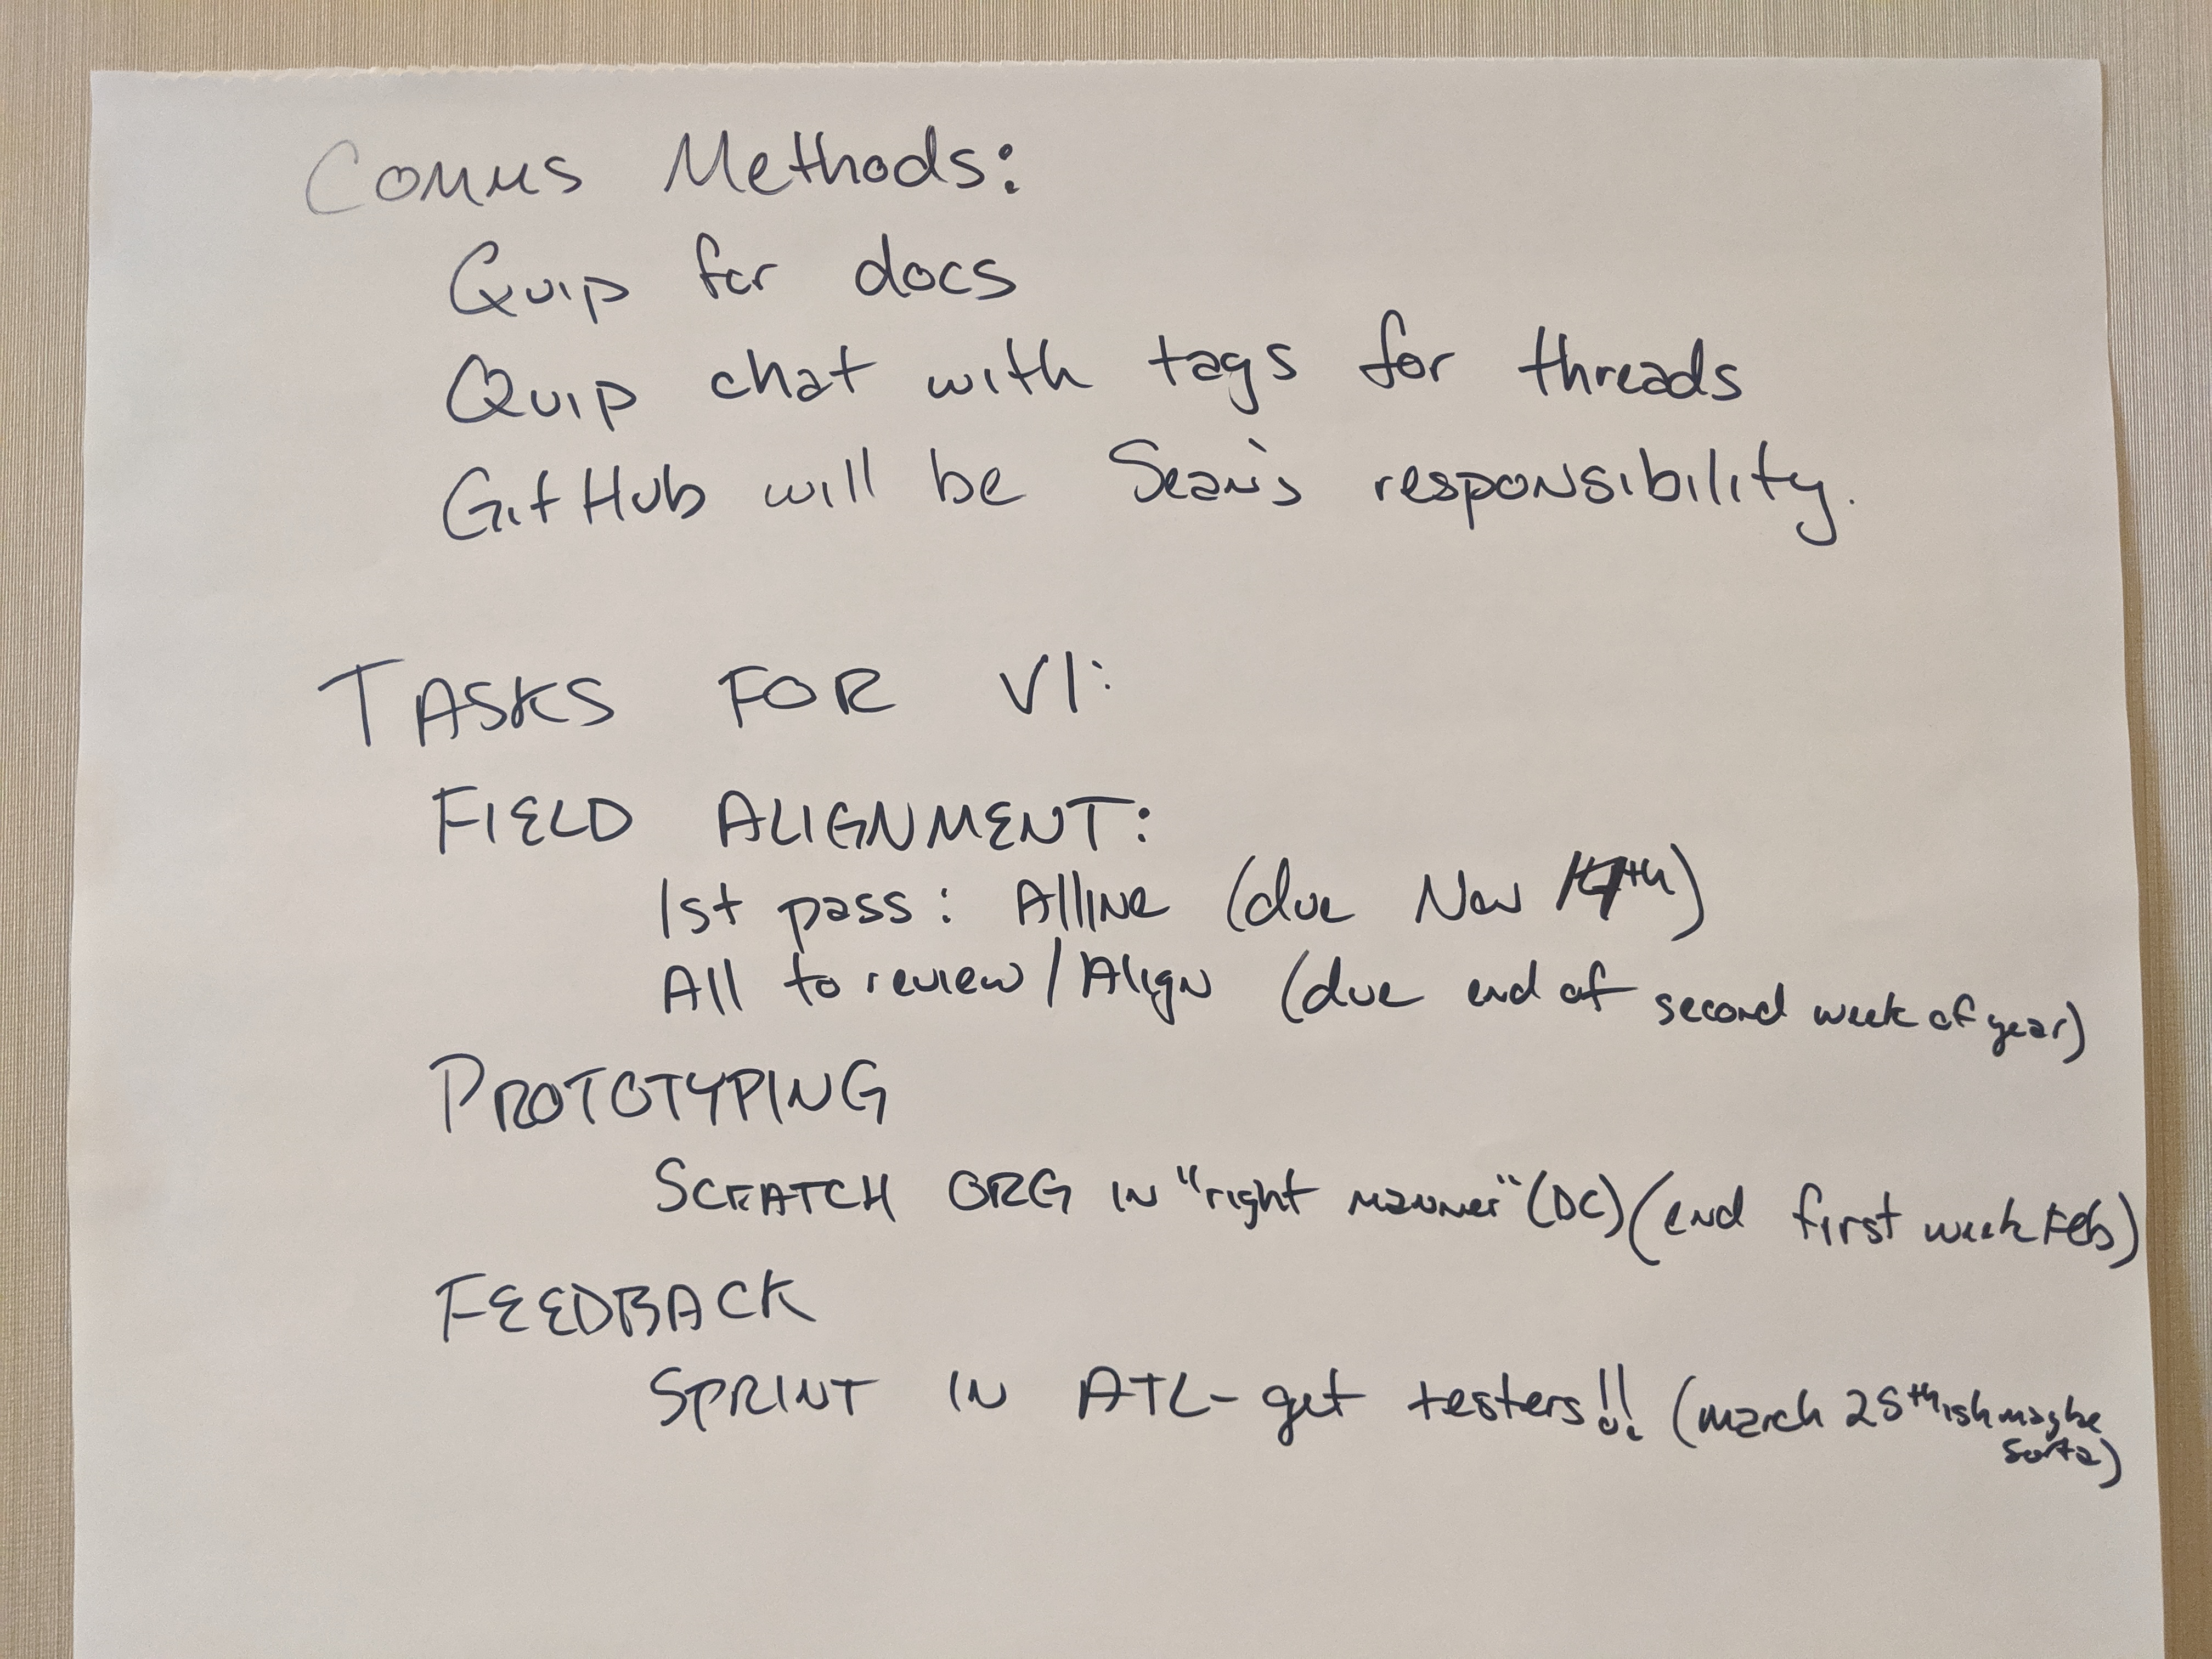 Comms Methods:
Quip for docs
Quip chat with tags for threads
GitHub will be Sean's responsibility.
TASKS FOR V1:
FIELD ALIGNMENT:
1st pass: Alline (due Nov
All to review/Align (due end of second week of year)
PROTOTYPING
SCRATCH ORG IN "right manner" (DC) (end first week Feb)
FEEDBACK
SPRINT IN ATL- get testers!! (march 25th ish maybe
sorta)